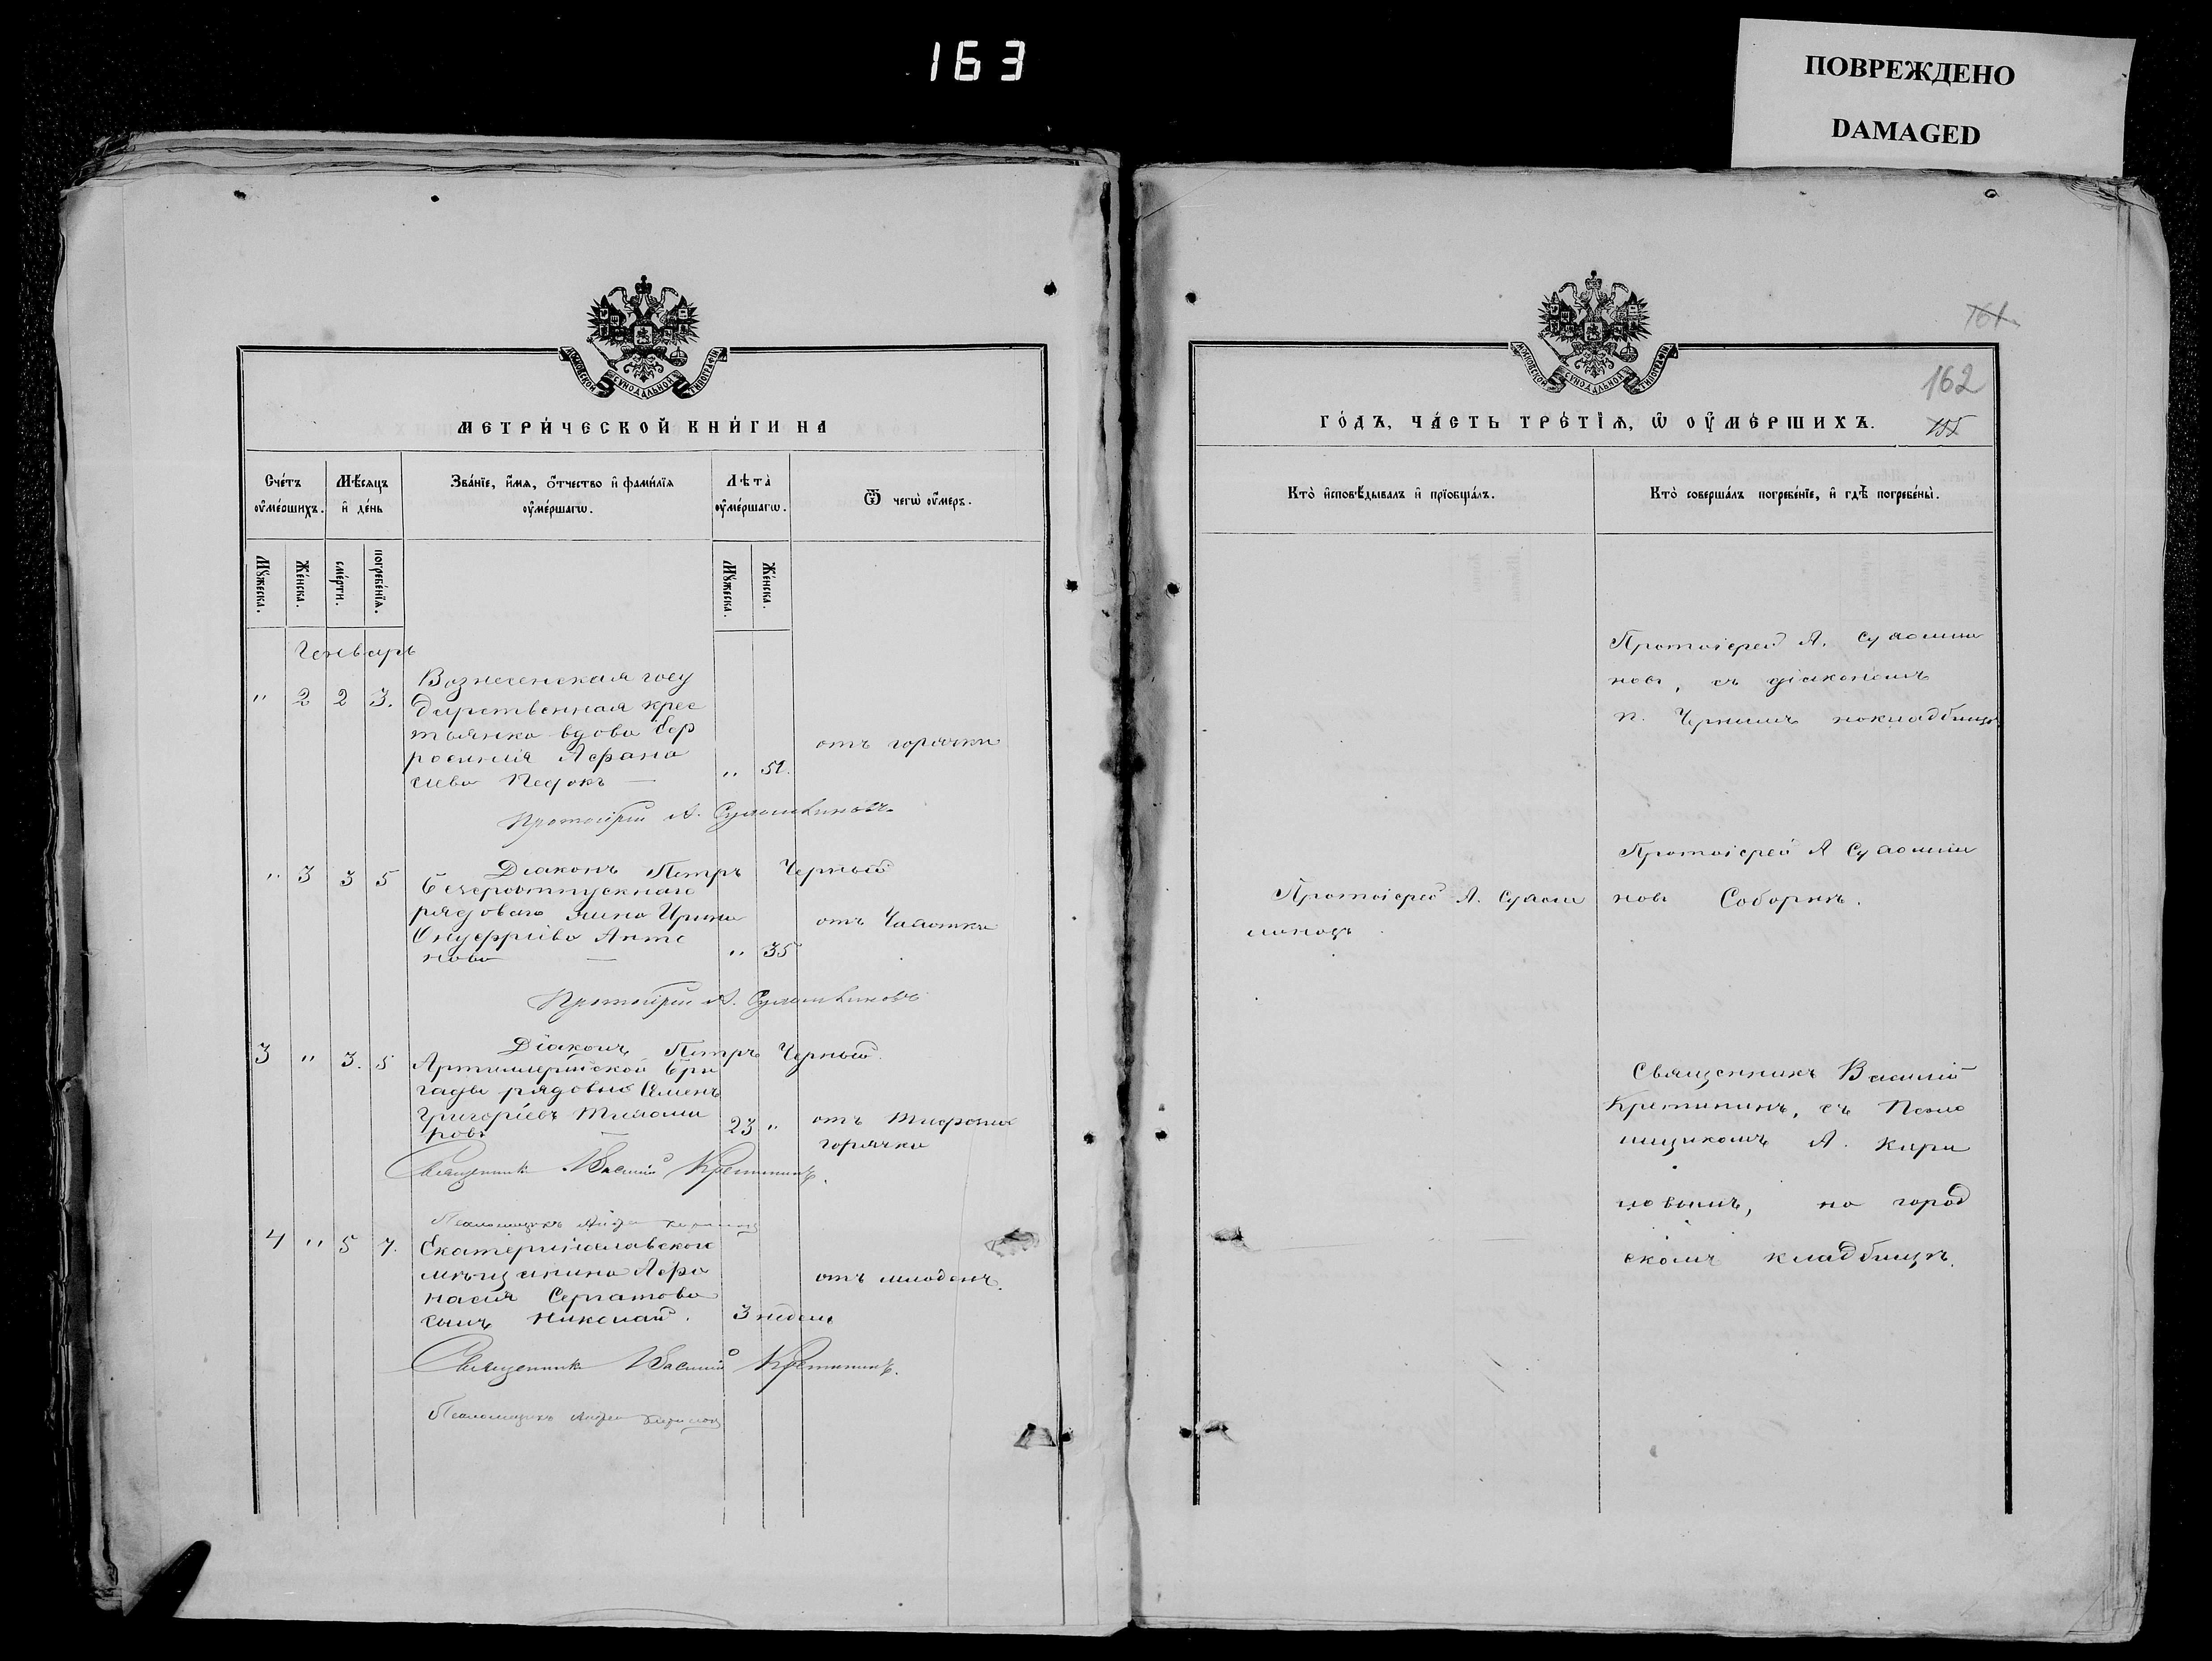 163
ПОВРЕЖДЕНО
DAMAGED
МОСКОВСКОЙ СѴНОДАЛЬНОЙ ТИПОГРАФІИ
МЕТРИ́ЧЕСКОЙ КНИ́ГИ НА
Сче́тъ ᲂу҆ме́ршихъ.
Мѣ́сяцъ и҆ де́нь
Зва́нїе, и҆́мя, ѻ҆́тчество и҆ фами́лїя ᲂу҆ме́ршагѡ.
Лѣта̀ ᲂу҆ме́ршагѡ.
Ѿ чегѡ̀ ᲂу҆́меръ.
Мꙋ́жеска.
Же́нска.
сме́рти.
погребе́нїя.
Мꙋ́жеска.
Же́нска.
Генварь
" 2 2 3.
Вознесенская госу
дарственная крес
тьянка вдова Евф
росинія Афана
сіева " 51. отъ горячки
Протоіерей А.
" 3 3 5
Діаконъ Петръ Черный
Безсрочноотпускнаго
рядоваго жена Ирина
Онуфріева Анто
нова — " 35 отъ Чахотки
Протоіерей А.
3 " 3. 5
Діаконъ Петръ Черный
Артиллерійской Бри
гады рядовый Семенъ
Григоріевъ 23 " отъ Тифозной
горячки
Священникъ Василій Кретининъ.
Псаломщикъ Андрей Кириловъ
4 " 5 7.
Екатеринославскаго
мѣщанина Афа
насія
сынъ Николай. 3 недели отъ младенч.
Священникъ Василій Кретининъ.
Псаломщикъ Андрей Кириловъ
МОСКОВСКОЙ СѴНОДАЛЬНОЙ ТИПОГРАФІИ
161
162
155
ГО́ДЪ, ЧА́СТЬ ТРЕ́ТЇЯ, Ѡ ОУ҆МЕ́РШИХЪ.
Кто̀ и҆сповѣ́дывалъ и҆ прїобща́лъ.
Кто̀ соверша́лъ погребе́нїе, и҆ гдѣ̀ погребе́ны.
Протоіерей А.
съ діакономъ
П. Чернымъ на кладбищѣ
Протоіерей А.
Протоіерей А
Соборнѣ.
Священникъ Василій
Кретининъ, съ Псало
мщикомъ А. Кири
ловымъ, на город
скомъ кладбищѣ.